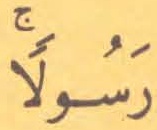 رَسُولًا ۚ